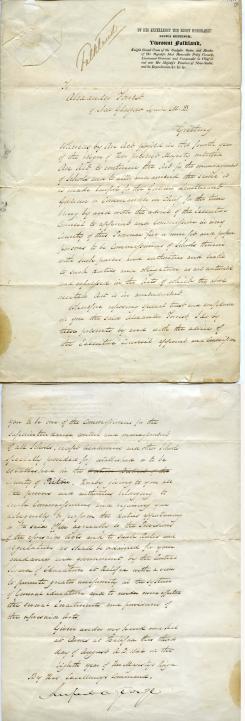 BY HIS EXCELLENCY THE RIGHT HONORABLE
LUCIUS BENTINCK,
Viscount Falkland,
Knight Grand Cross of the Guelphic Order, and Member
of Her Majesty's Most Honorable Privy Council,
Lieutenant Governor and Commander in Chief in
and over Her Majesty's Province of Nova-Scotia,
and its Dependencies, &c. &c. &c.
Falkland
To
Alexander Forrest
of New Glasgow M. D.
Greeting
Whereas by an Act passed in the fourth year
of the reign of Her present Majesty entitled
An Act to continue the Act for the encouragement
of Schools and to amend the same it
is made lawful for the Governor Lieutenant
Governor or Commander in Chief for the time
being by and with the advice of the Executive
Council to appoint and Commission in any
County of this Province five or more fit and proper
persons to be Commissioners of Schools therein
with such powers and authorities and liable
to such duties and obligations as are contained
and expressed in the Act of which the said
recited Act is in amendment
Wherefore reposing special trust and confidence
in you the said Alexander Forrest I do by
these presents by and with the advice of
the Executive Council appoint and commission
you to be one of the Commissioners for the
superintendence control and management
of all Schools, except Academies and other Schools
specially provided for, established or to be
established in the
County of Pictou, hereby giving to you all
the powers and authorities belonging to
such Commissioners and requiring you
to perform the duties appertaining
to the said Office agreeably to the provisions
of the aforesaid Acts and to such rules and
regulations as shall be ordained for your
guidance and government by the
Board of Education at Halifax with a view
to promote greater uniformity in the system
of Common education and to
the several enactments and provisions of
the aforesaid Acts.
Given under my hand and seal
at Arms at Halifax this third
day of August A.D. 1844 in the
eighth year of Her Majesty's Reign
By His Excellency's Command,
Rupert D. George